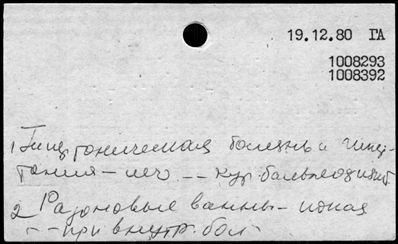 19.12.80 ГА
1008293
1008392
1 Гипертоническая болезнь и гипер-
тония – леч. -- кур. бальнеолог.
2 Радоновые ванны –
-- при внутр. бол.